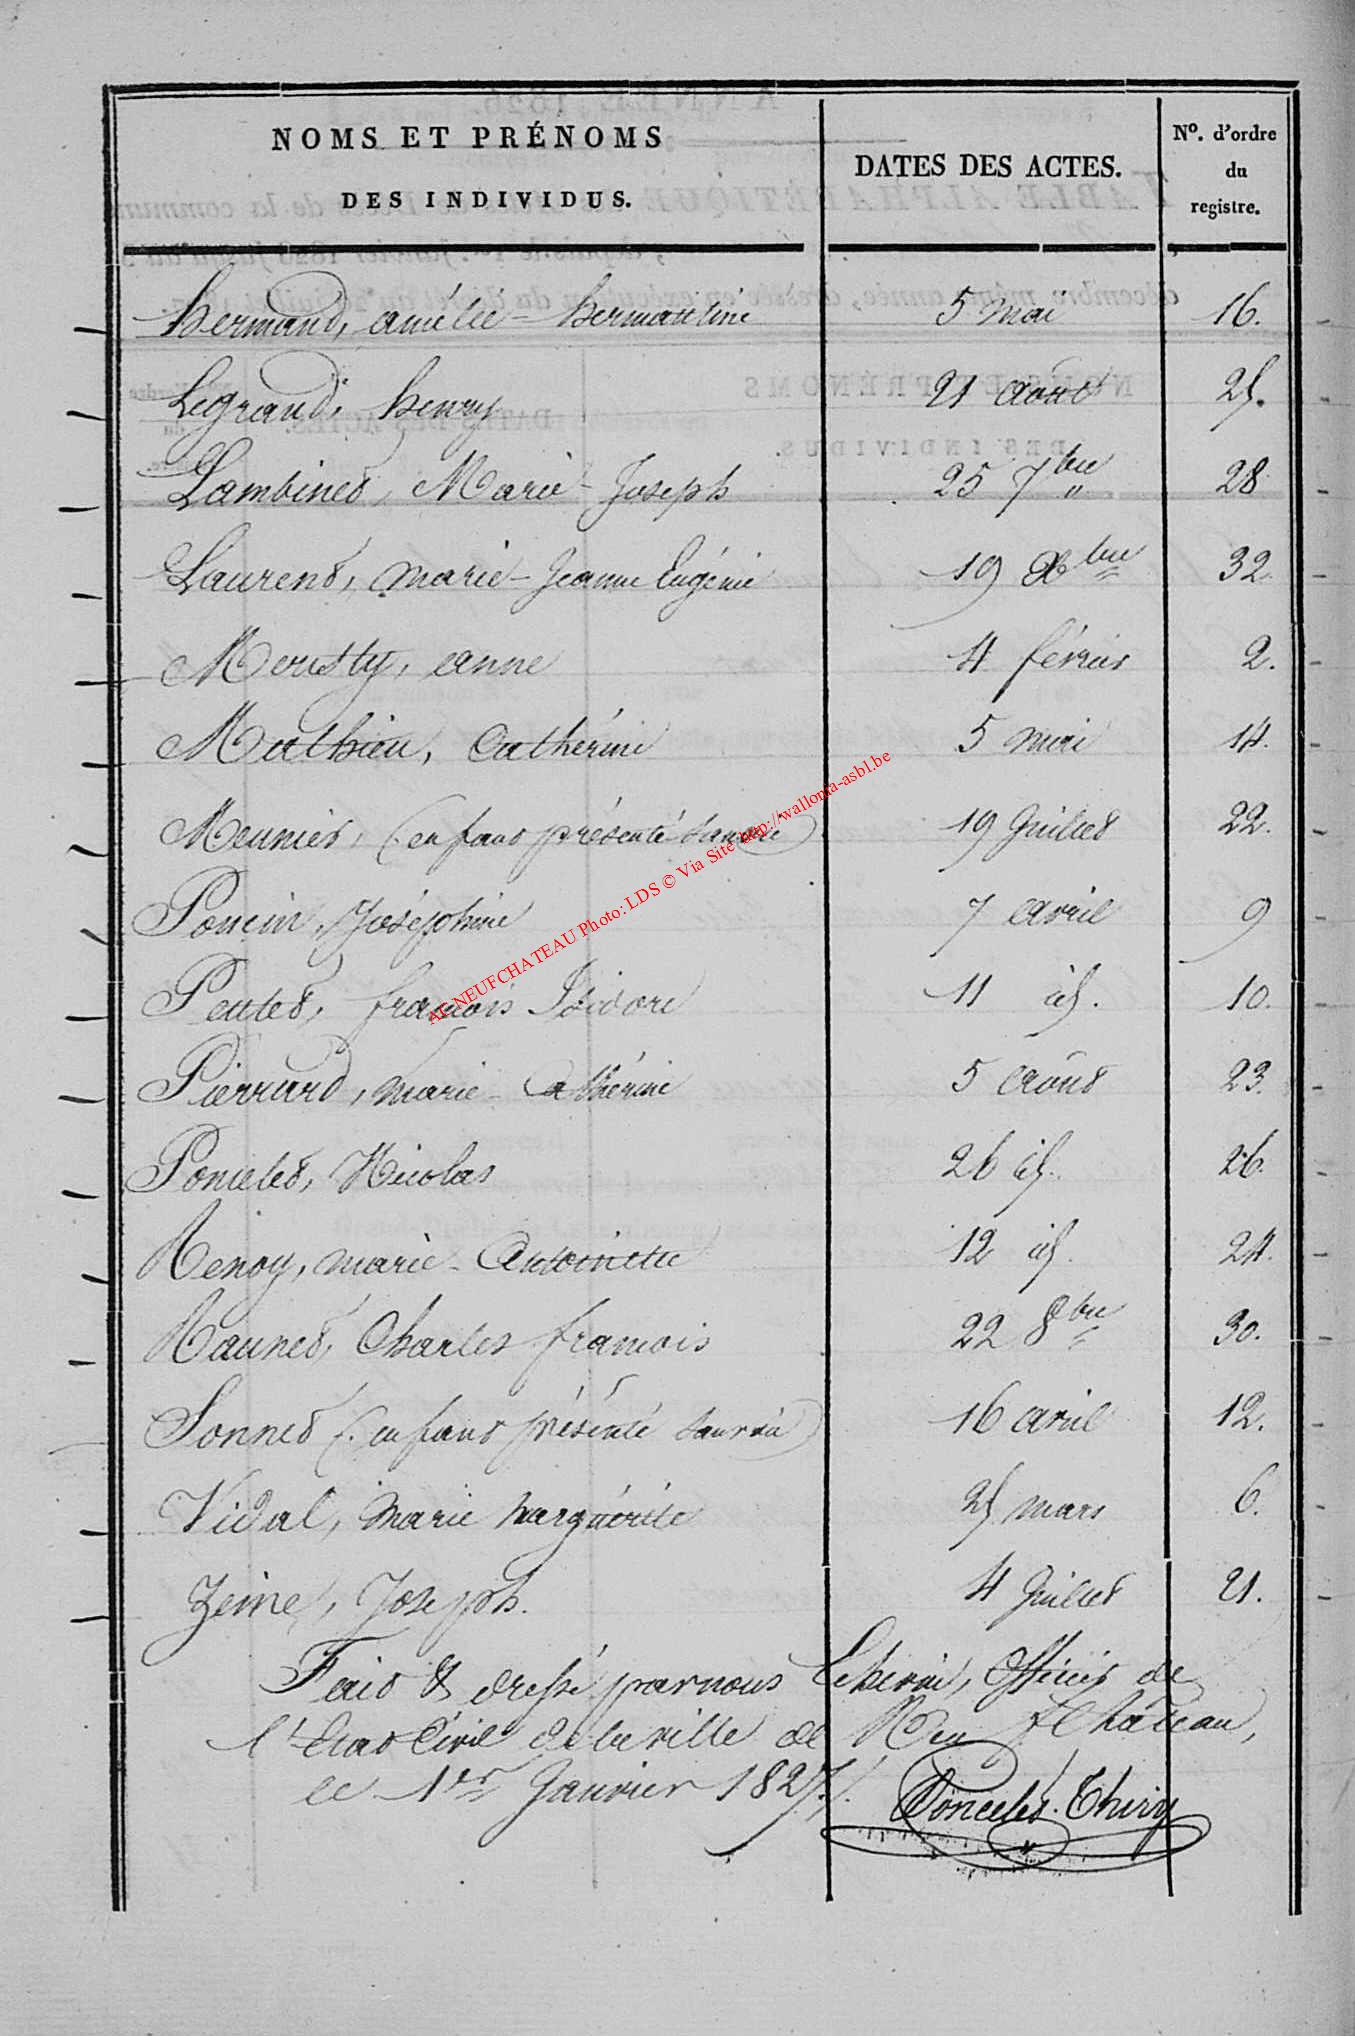 NOMS ET PRÉNOMS
DES INDIVIDUS.
DATES DES ACTES.
N°. d'ordre
du
registre.
hermand, amélie - hermantine 5 mai 16.
Legrand, henry 21 aout 25.
Lambinet, Marie - Joseph 25 7bre 28
Laurent, marie - Jeanne Eugénie 19 Xbre 32.
Mousty, anne 4 février 2.
Mathieu, Catherine 5 mai 14.
Meunier, (enfant présenté sans vie) 19 Juillet 22.
Poncin, Joséphine 7 avril 9
Pentet, francois Isidore 11 id. 10.
Pierrard, marie - Catherine 5 Août 23.
Poncelet, Nicolas 26 id. 26.
Renoy, marie - Antoinette 12 id. 24.
Raunet, Charles francois 22 8bre 30.
Sonnet (enfant présenté sans vie) 16 avril 12.
Vidal, Marie marguérite 25 mars 6.
Zeine, Joseph. 4 Juillet 21.
Fait & dressé par nous Echevin, officier de
l'Etat Civil de la ville de Neufchateau,
le 1er Janvier 1827.
Poncelet. Thiry
AE NEUFCHATEAU Photo: LDS © Via Site http://wallonia-asbl.be